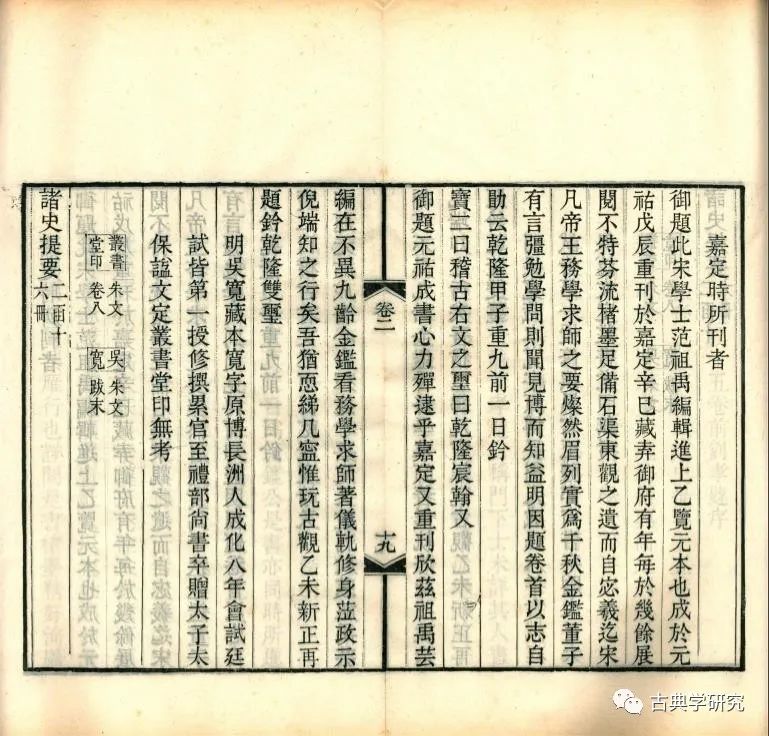 嘉定時所刊者
御題此宋學士范祖禹編輯進上乙覽元本也成於元
祐戊辰重刊於嘉定辛巳藏弆御府有年每於幾餘展
閱不特芬流楮墨足備石渠東觀之遺而自宓羲迄宋
凡帝王務學求師之要燦然眉列實爲千秋金鑑董子
有言彊勉學問則聞見博而知益明因題卷首以志自
勖云乾隆甲子重九前一日鈐
寶二曰稽古右文之璽曰乾隆宸翰又
御題元祐成書心力殫逮乎嘉定又重刊欣茲祖禹芸
卷二
十九
編在不異九齡金鑑看務學求師著儀軌修身蒞政示
倪端知之行矣吾猶恧綈几甯惟玩古觀乙未新正再
題鈐乾隆雙璽
明吳寬藏本寬字原博長洲人成化八年會試廷
試皆第一授修撰累官至禮部尚書卒贈太子太
保諡文定叢書堂印無考
叢書堂印 朱文 卷八
吳寬 朱文 跋末
諸史提要 二函十六冊
古典学研究